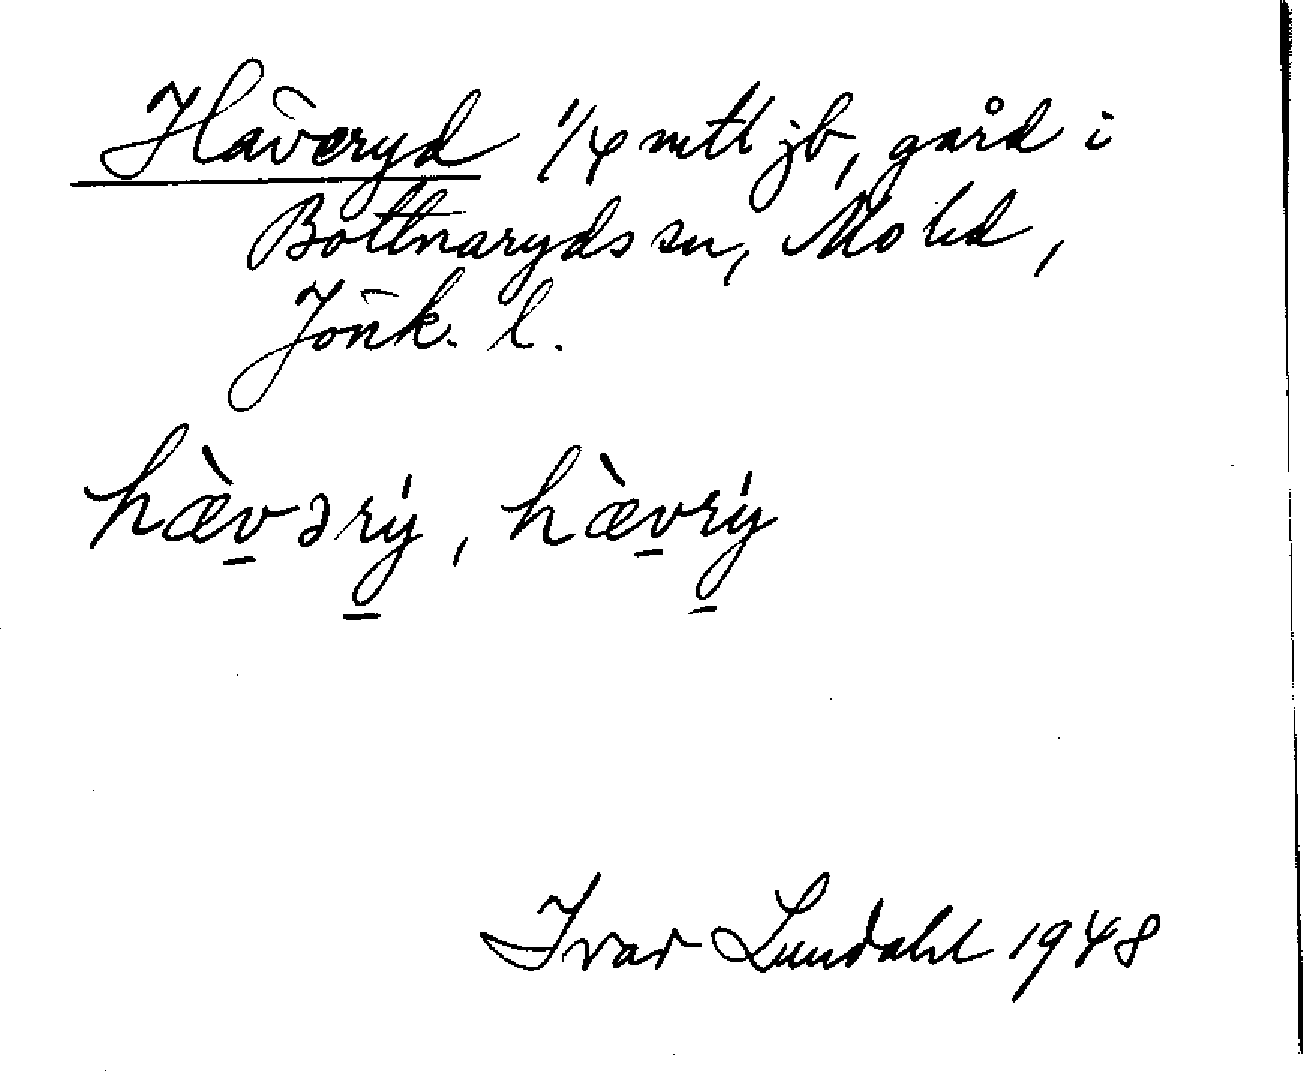 Häveryd 1/4 mtl jb, gård i
Bottnaryds sn, Mo hd,
Jönk. l.
hæ̀vərý, hæ̀vrý
Ivar Lundahl 1948